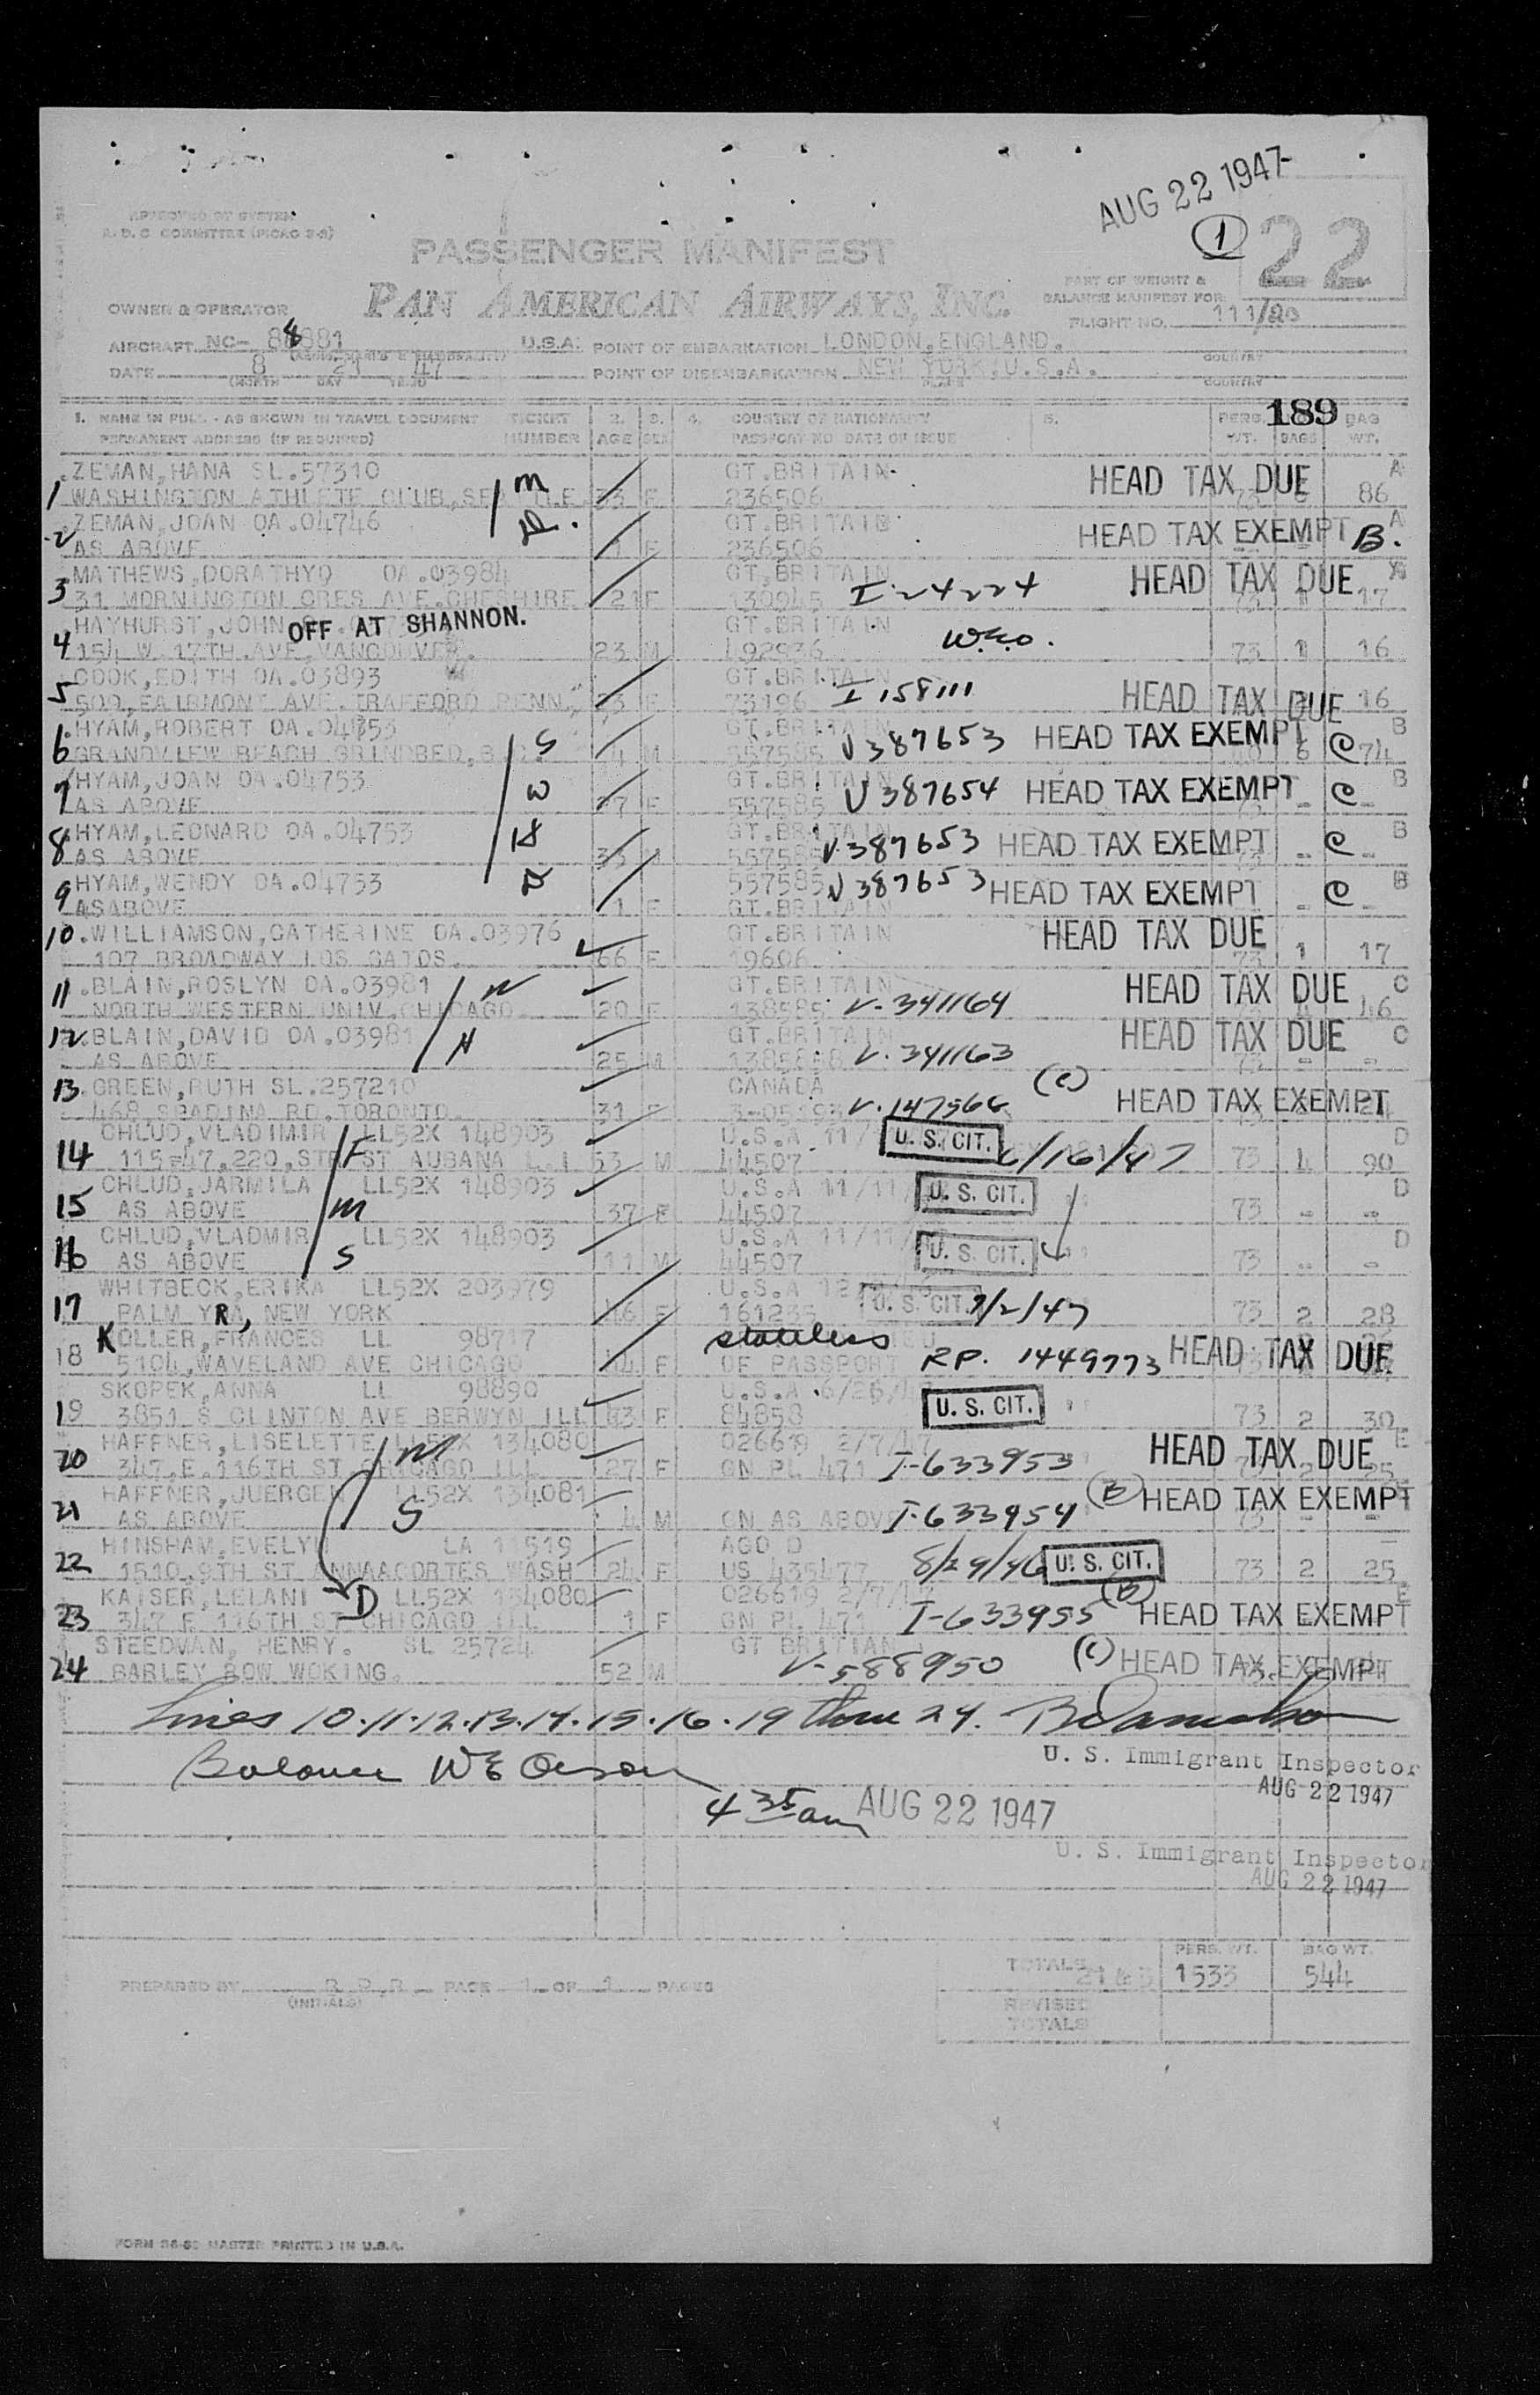 AUG 22 1947
APPROVED BY SYSTEM
A.D.C COMMITTEE (PICAO 2-3)
1
22
PASSENGER MANIFEST
PART OF WEIGHT &
BALANCE MANIFEST FOR
OWNER & OPERATOR
PAN AMERICAN AIRWAYS, INC.
FLIGHT NO. 111/20
AIRCRAFT NC- 88881
U.S.A. POINT OF EMBARKATION LONDON, ENGLAND.
COUNTRY
DATE 8 21 47
POINT OF DISEMBARKATION NEW YORK, U.S.A.
(MONTH DAY YEAR)
PLACE
COUNTRY
189
1. NAME IN FULL - AS SHOWN IN TRAVEL DOCUMENT TICKET 2. 3. 4. COUNTRY OF NATIONALITY 5. PERS. BAG
PERMANENT ADDRESS (IF REQUIRED) NUMBER AGE SEX PASSPORT NO DATE OF ISSUE WT. BAGS WT.
ZEMAN, HANA SL.57310 M GT.BRITAIN HEAD TAX DUE A
1 WASHINGTON ATHLETE CLUB, 33 F 236506 86
ZEMAN, JOAN OA.04746 D. HEAD TAX EXEMPT B. A
2 AS ABOVE 1 F 236506
MATHEWS, DORATHYO OA.03984 GT.BRITAIN HEAD TAX DUE
3 31 MORNINGTON CRES AVE.CHESHIRE 21 F 130945 I-24224 17
HAYHURST, JOHN OFF AT SHANNON. GT.BRITAIN
4 154 W. 17TH.AVE, VANCOUVER. 23 M 492936 73 1 16
COOK, EDITH OA.03893 GT.BRITAIN
5 500, FAIRMONT AVE. TRAFFORD PENN. 23 F 73196 I 158111 HEAD TAX DUE 16
HYAM, ROBERT OA.04753 S GT.BRITAIN B
6 GRANDVIEW BEACH 4 M 557585 V387653 HEAD TAX EXEMPT 6 C 74
HYAM, JOAN OA.04753 W GT.BRITAIN B
7 AS ABOVE 27 F 557585 V387654 HEAD TAX EXEMPT - C -
HYAM, LEONARD OA.04753 H GT.BRITAIN B
8 AS ABOVE 33 M V387653 HEAD TAX EXEMPT - C -
HYAM, WENDY OA.04753 D 557585 V387653 HEAD TAX EXEMPT C B
9 ASABOVE 1 F GT.BRITAIN
10. WILLIAMSON, CATHERINE OA.03976 GT.BRITAIN HEAD TAX DUE
107 BROADWAY LOS GATOS. 66 F 19606 73 1 17
11. BLAIN, ROSLYN OA.03981 W GT.BRITAIN HEAD TAX DUE C
NORTH WESTERN UNIV. CHICAGO 20 F 138585 V-341164 46
12. BLAIN, DAVID OA.03981 H GT.BRITAIN HEAD TAX DUE C
AS ABOVE 25 M V-341163 73 - -
13. GREEN, RUTH SL.257210 CANADA (C)
468 SPADINA RD. TORONTO. 31 F V-147566 HEAD TAX EXEMPT
CHLUD, VLADIMIR LL52X 148903 F U.S.A U. S. CIT. D
14 115-47, 220, ST ST AUBANA L.I 53 M 44507 6/16/47 73 4 90
CHLUD, JARMILA LL52X 148903 U.S.A 11/11/ U. S. CIT. D
15 AS ABOVE M 37 F 44507 73 - -
CHLUD, VLADMIR LL52X 148903 U.S.A 11/11/ U. S. CIT. D
16 AS ABOVE S 11 M 44507 73 - -
WHITBECK, ERIKA LL52X 203979 U.S.A U. S. CIT. 7/2/47
17 PALM YRA, NEW YORK F 73 2 28
KOLLER, FRANCES LL 98717 stateless
18 5104, WAVELAND AVE CHICAGO 44 F OF PASSPORT RP. 1449773 HEAD TAX DUE
SKOPEK, ANNA LL 98890 U.S.A U. S. CIT.
19 3851 S CLINTON AVE BERWYN ILL 43 F 84858 73 2 30
HAFFNER, LISELETTE LL52X 134080 M 026619 2/7/47 HEAD TAX DUE E
20 347 E. 116TH ST CHICAGO ILL 27 F GN PL 471 I-633953 2 25
HAFFNER, JUERGEN LL52X 134081 (B) HEAD TAX EXEMPT
21 AS ABOVE S 4 M GN AS ABOVE I-633954 73 - -
HINSHAM, EVELYN LA 11519 AGO D
22 1510, 9TH ST ANNAACORTES WASH 24 F US 435477 8/29/46 U. S. CIT. 73 2 25
KAISER, LELANI D LL52X 134080 026619 2/7/47 (B) E
23 347 E 116TH ST CHICAGO ILL 1 F GN PL 471 I-633955 HEAD TAX EXEMPT
STEEDVAN, HENRY. SL 25724 GT BRITIAN
24 BARLEY BOW WOKING. 52 M V-588950 (C) HEAD TAX EXEMPT
Lines 10.11.12.13.14.15.16.19 thru 24.
Balance
U. S. Immigrant Inspector
AUG 22 1947
4 35 am AUG 22 1947
U. S. Immigrant Inspector
AUG 22 1947
PERS. WT. BAG WT.
TOTALS 1533 544
PREPARED BY R.D.R PAGE 1 OF 1 PAGES
(INITIALS)
REVISED
TOTALS
FORM MASTER PRINTED IN U.S.A.